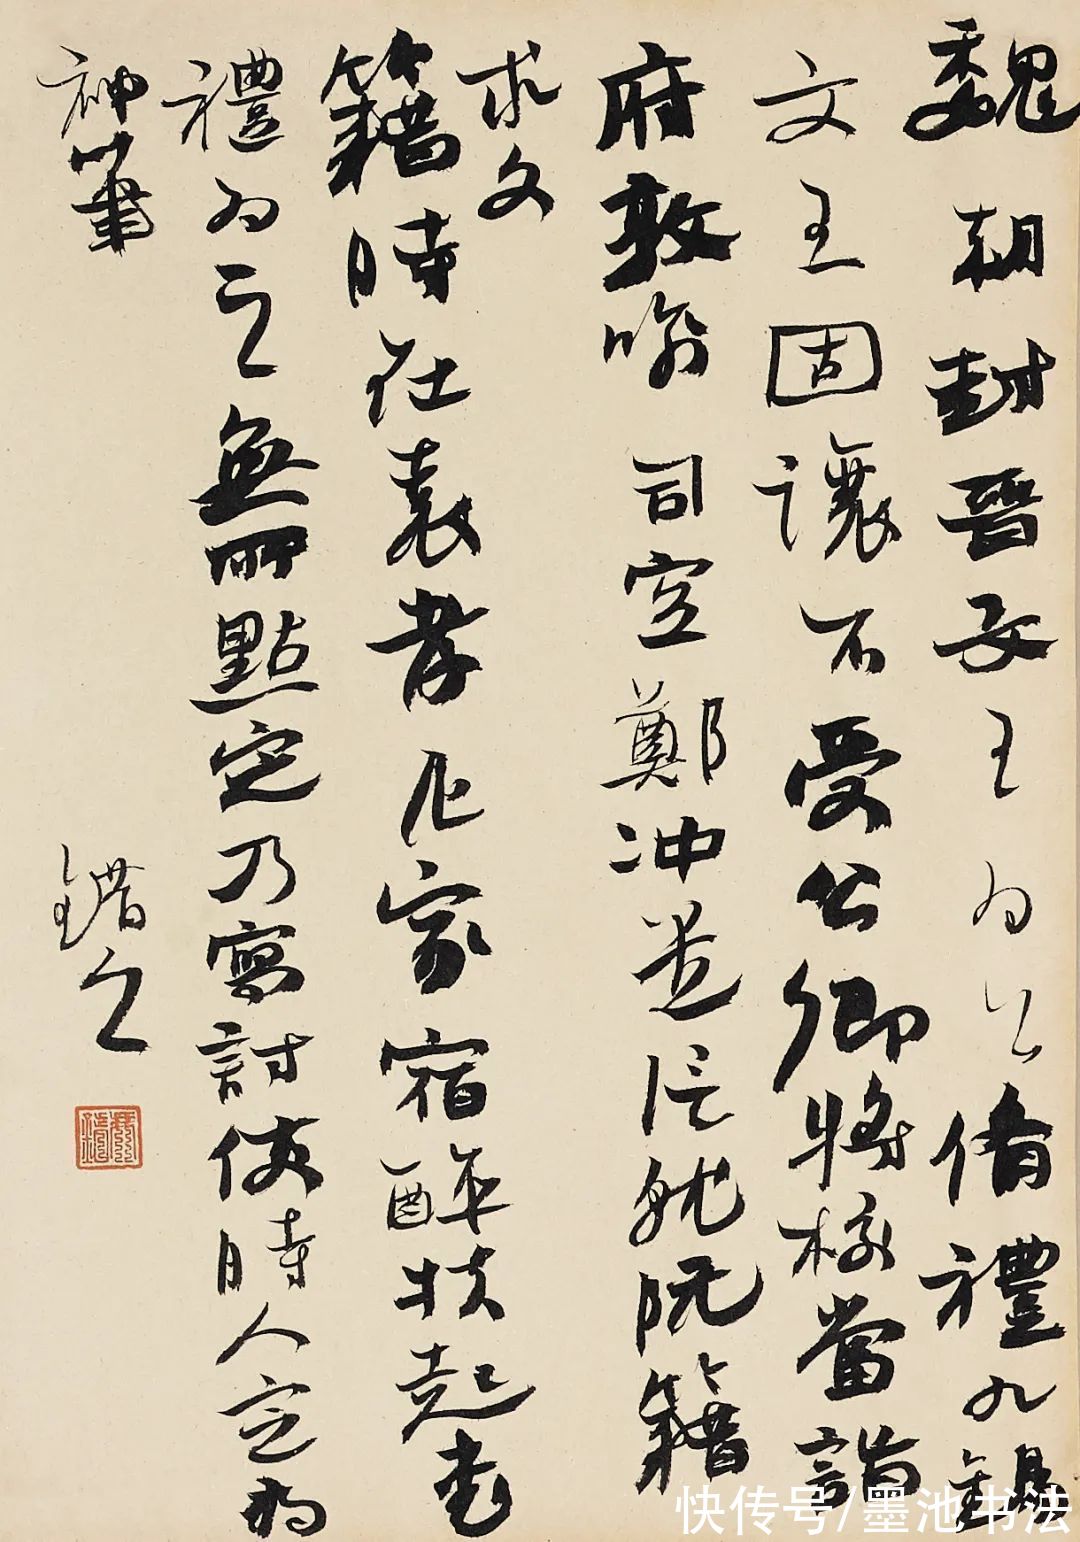 魏朝封晉文王为公俻禮九錫
文王固讓不受公卿将校當詣
府敦喻司空鄭冲𠀤信就阮籍
求文
籍時在袁孝尼家宿醉扶起書
禮为之無所點定乃寫討使時人定为
神筆
錯之
快传号/墨池书法